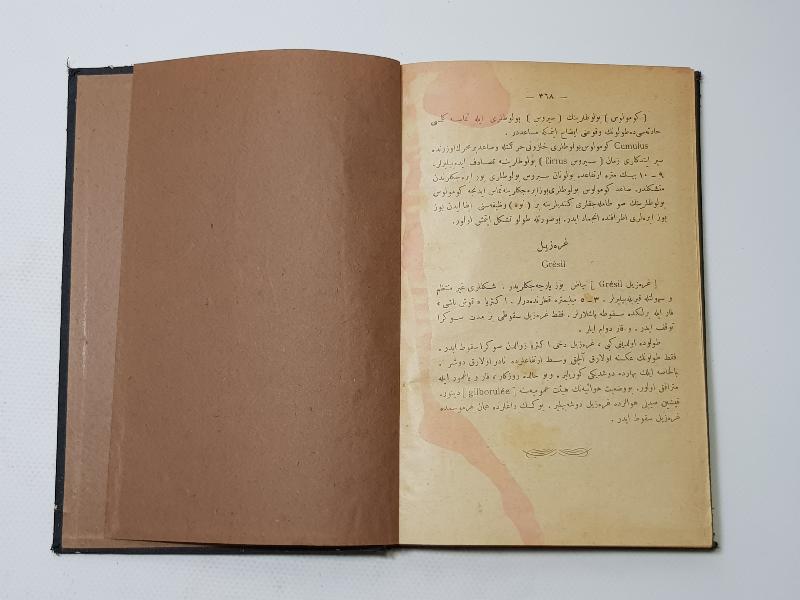 — ٣٦٨ —
( كومولوس ) بولوطلرينك ( سيروس ) بولوطلرى ايله تماسه كلمسى
حادثه‌سى‌ده طولونك وقوعنى ايضاح ايتمكه مساعددر .
Cumulus كومولوس بولوطلرى حلزونى حركتله وصاعد بر محرك اوزرنده
سير ايتدكلرى زمان ( سيروس Cirrus ) بولوطلرينه تصادف ايده‌بيليرلر.
٩ – ١٠ بيك متره ارتفاعده بولونان سيروس بولوطلرى بوز ابره‌جكلرندن
متشكلدر. صاعد كومولوس بولوطلرى بوز ابره‌جكلرينه تماس ايدنجه كومولوس
بولوطلرينك صو طامله‌جقلرى كنديلرينه بر ( نوه ) وظيفه‌سنى ايفا ايدن بوز
بوز ابره‌لرى اطرافنده انجماد ايدر. بوصورتله طولو تشكل ايتمش اولور.
غره‌زيل
Grésil
[ غره‌زيل Grésil ] بياض بوز پارچه‌جكلريدر. شكللرى غير منتظم
و سهولتله قيريله‌بيليرلر. ٣ – ٥ ميليمتره قطرنده‌درلر. اكثريا « قوش باشى »
قار ايله برلكده سقوطه باشلارلر. فقط غره‌زيل سقوطى بر مدت سوكرا
توقف ايدر . و قار دوام ايلر .
طولوده اولديغى كبى ، غره‌زيل دخى اكثريا زوالدن سوكرا سقوط ايدر .
فقط طولونك عكسنه اولارق آلچق وسط ارتفاعلرده نادر اولارق دوشر .
بالخاصه ايلك بهارده دوشديكى كوريلير. وبو حالده روزكار ، قار و ياغمور ايله
مترافق اولور. بووضعيت هوائيه‌نك هيئت عموميه‌سنه [ gilborulée ] دينور.
قيشين صيسى هوالرده غره‌زيل دوشه‌بيلير . يوكسك داغلرده همان هر موسمده
غره‌زيل سقوط ايدر .